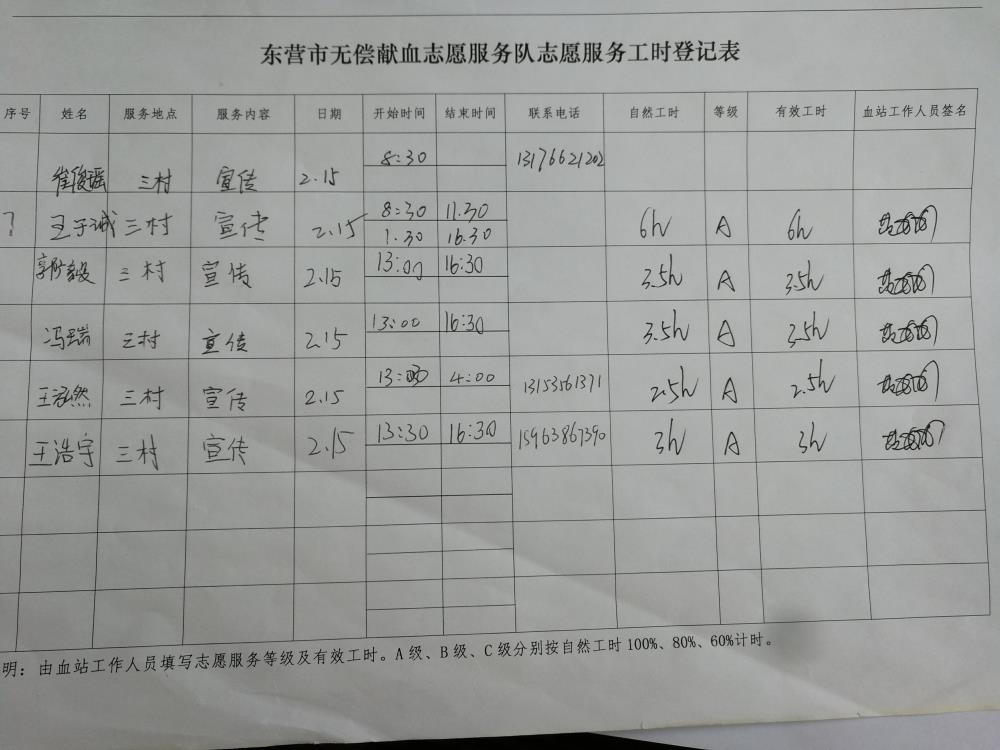 东营市无偿献血志愿服务队志愿服务工时登记表
序号 姓名 服务地点 服务内容 日期 开始时间 结束时间 联系电话 自然工时 等级 有效工时 血站工作人员签名
崔俊瑶 三村 宣传 2.15 8:30 13176621202
王于诚 三村 宣传 2.15 8:30 11.30 6h A 6h
1.30 16.30
三村 宣传 2.15 13:00 16:30 3.5h A 3.5h
冯瑞 三村 宣传 2.15 13:00 16:30 3.5h A 3.5h
王泓然 三村 宣传 2.15 13:30 4:00 13153561371 2.5h A 2.5h
王浩宇 三村 宣传 2.15 13:30 16:30 15963867390 3h A 3h
明：由血站工作人员填写志愿服务等级及有效工时。A级、B级、C级分别按自然工时100%、80%、60%计时。